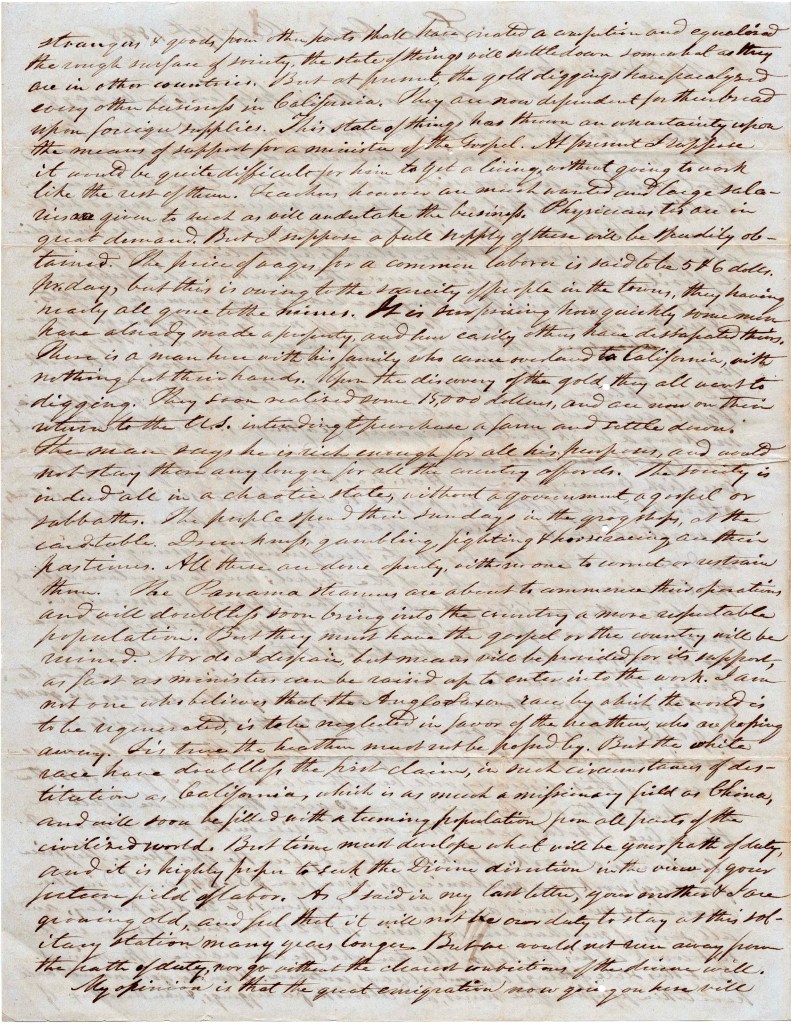 strangers & goods from other parts shall have created a competition and equalized
the rough surface of society, the state of things will settle down somewhat as they
are in other countries. But at present, the gold diggings have paralyzed
every other business in California. They are now dependent for their bread
upon foreign supplies. This state of things has thrown an uncertainty upon
the means of support for a minister of the Gospel. At present I suppose
it would be quite difficult for him to get a living, without going to work
like the rest of them. Teachers however are much wanted and large sala-
ries are given to such as will undertake the business. Physicians too are in
great demand. But I suppose a full supply of these will be speedily ob-
tained. The price of wages for a common laborer is said to be 5 & 6 dolls.
pr. day, but this is owing to the scarcity of people in the towns, they having
nearly all gone to the mines. It is surprising how quickly some men
have already made a property, and how easily others have dissipated theirs.
There is a man here with his family who came overland to California, with
nothing but their hands. Upon the discovery of the gold, they all went to
digging. They soon realized some 15,000 dollars, and are now on their
return to the U.S. intending to purchase a farm and settle down.
The man says he is rich enough for all his purposes, and would
not stay there any longer for all the country affords. The society is
indeed all in a chaotic state, without a government a gospel or
sabbaths. The people spend their sundays in the grogshops, at the
card table. Drunkenness, gambling, fighting & horseracing are their
pastimes. All these are done openly, with no one to correct or restrain
them. The Panama steamers are about to commence their operations
and will doubtless soon bring into the country a more respectable
population. But they must have the gospel or the country will be
ruined. Nor do I despair, but means will be provided for its support,
as fast as ministers can be raised up to enter into the work. I am
not one who believes that the Anglo Saxon race, by which the world is
to be regenerated, is to be neglected in favor of the heathen, who are passing
away. Tis true the heathen must not be passed by. But the white
race have doubtless the first claim, in such circumstances of des-
titution as California, which is as much a missionary field as China,
and will soon be filled with a teeming population from all parts of the
civilized world. But time must develope what will be your path of duty,
and it is highly proper to seek the Divine direction in the view of your
future field of labor. As I said in my last letter, your mother & I are
growing old, and feel that it will not be our duty to stay at this sol-
itary station many years longer. But we would not run away from
the path of duty, nor go without the clearest indications of the divine will.
My opinion is that the great emigration now going on here will